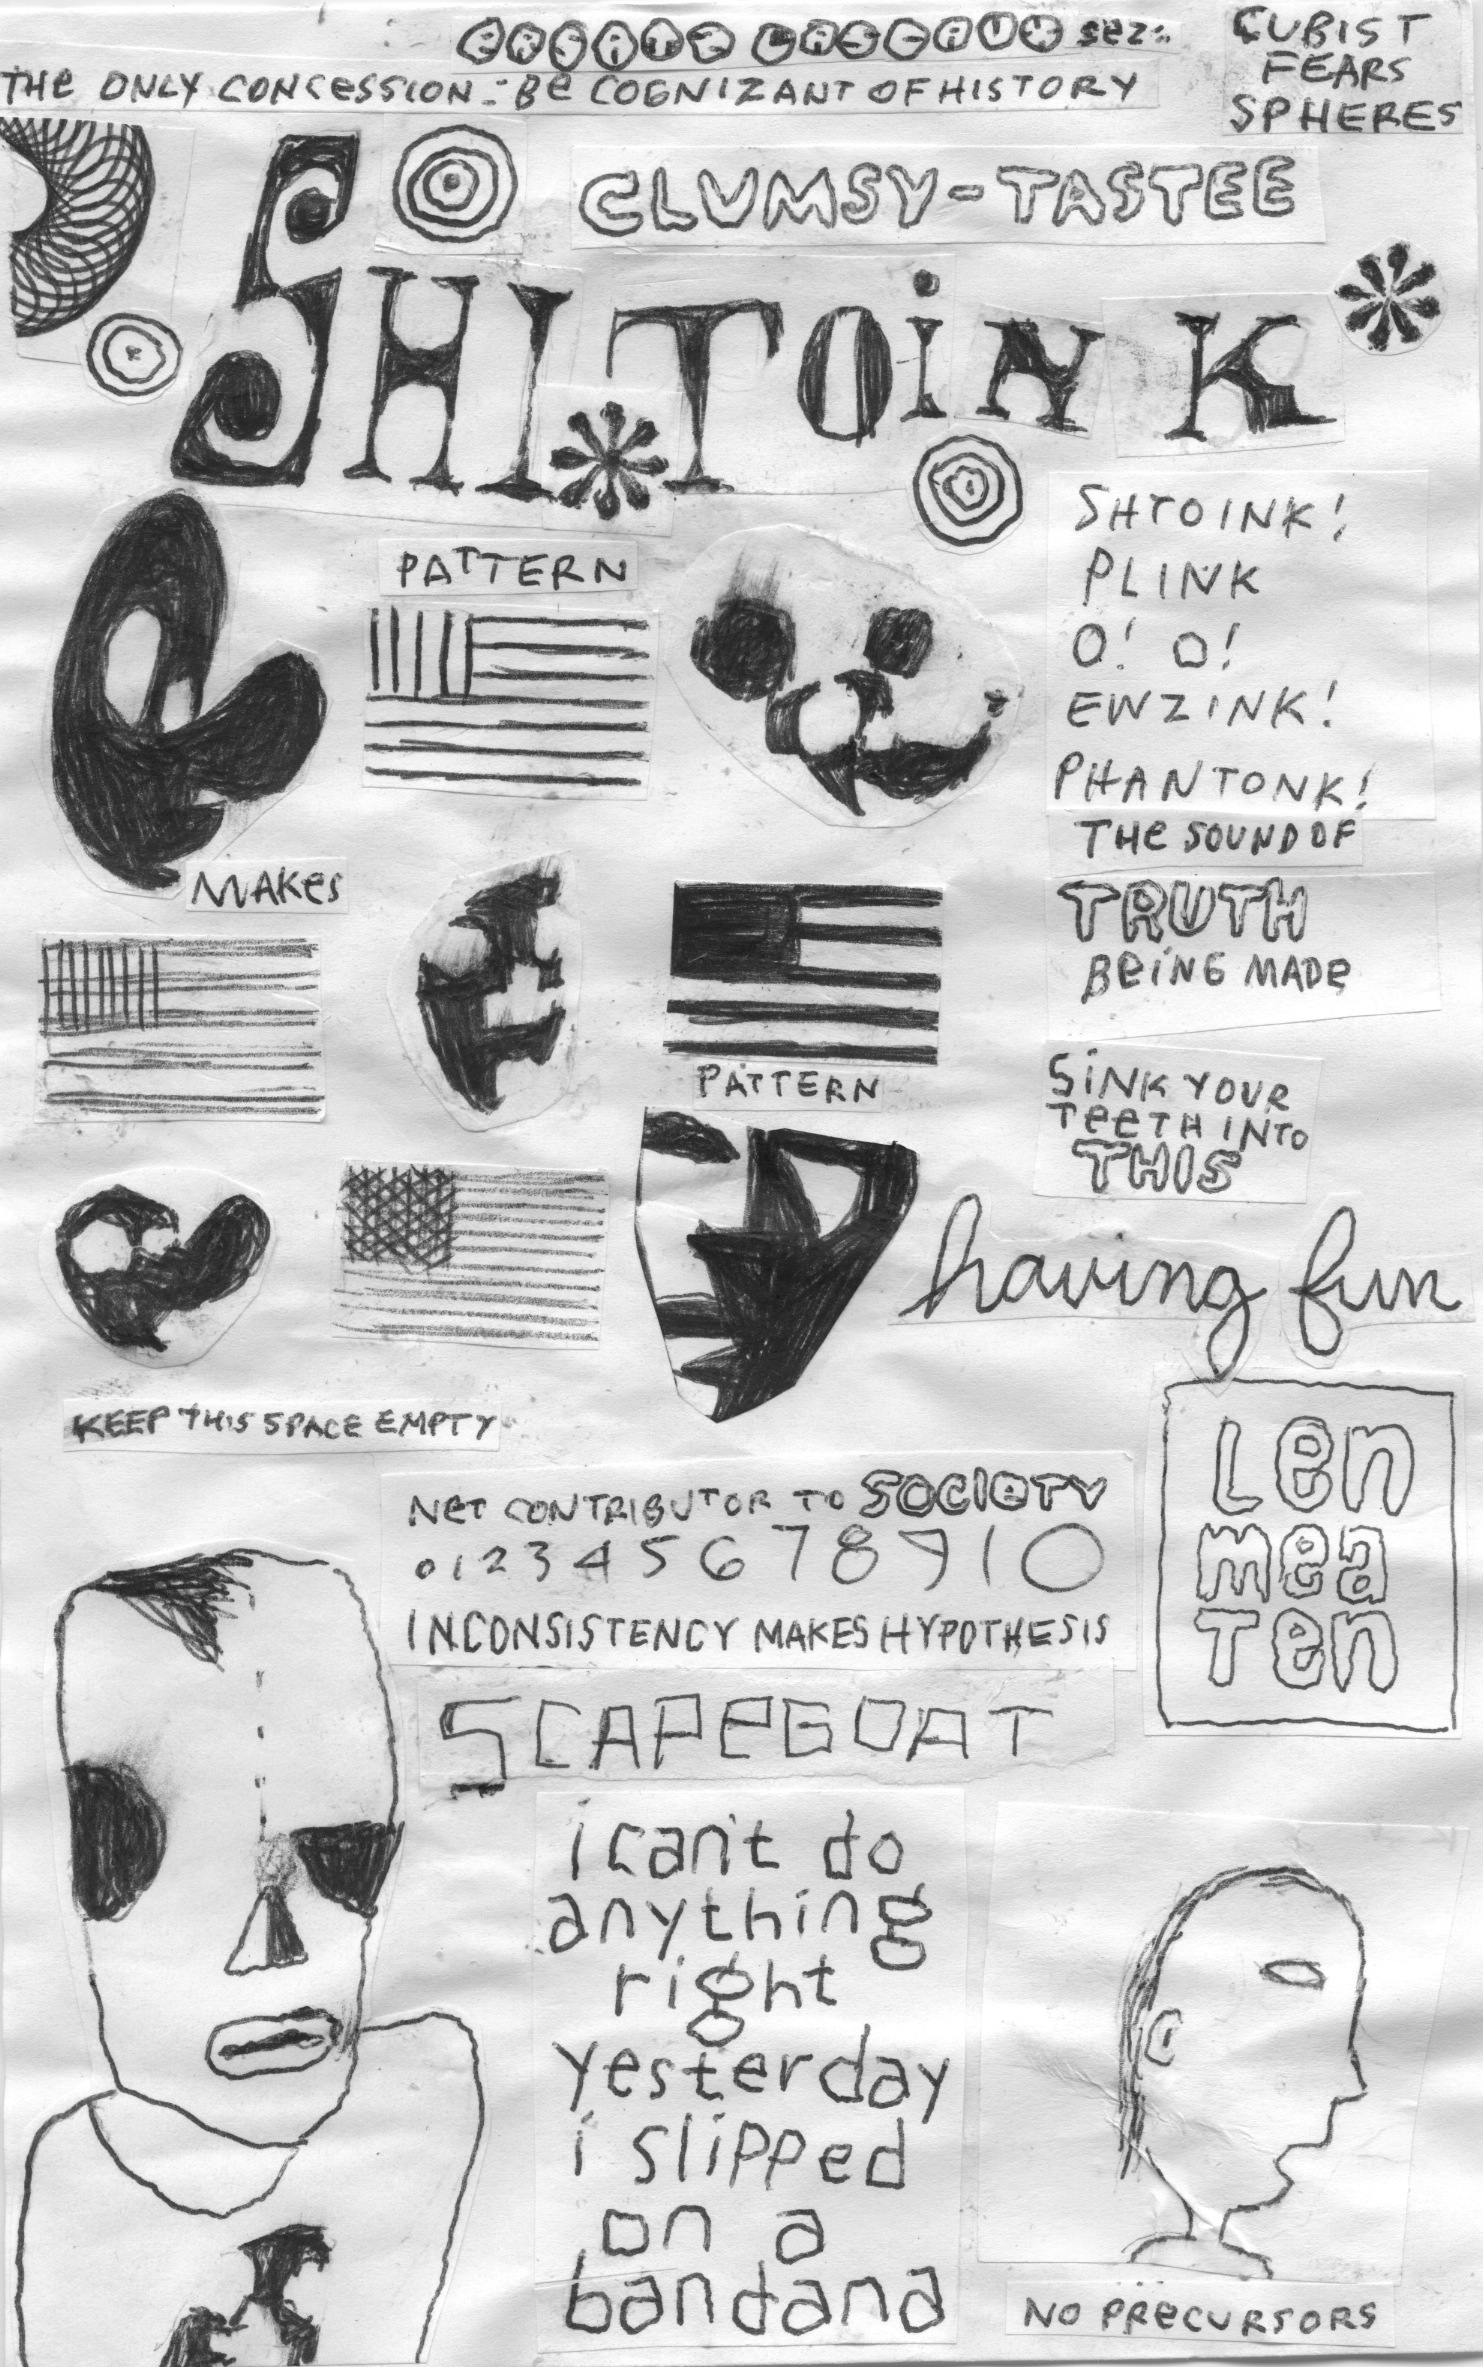 ERSATZ LASCAUX sez:
THE ONLY CONCESSION: BE COGNIZANT OF HISTORY
CUBIST
FEARS
SPHERES
CLUMSY-TASTEE
SHI*TOiNK
SHTOINK!
PLINK
O! O!
EWZINK!
PHANTONK!
THE SOUND OF
TRUTH
BEING MADE
PATTERN
MAKES
PATTERN
SINK YOUR
TEETH INTO
THIS
having fun
KEEP THIS SPACE EMPTY
Len
mea
Ten
NET CONTRIBUTOR TO SOCIETY
0 1 2 3 4 5 6 7 8 9 10
INCONSISTENCY MAKES HYPOTHESIS
SCAPEGOAT
i can't do
anything
right
yesterday
i slipped
on a
bandana
NO PRECURSORS